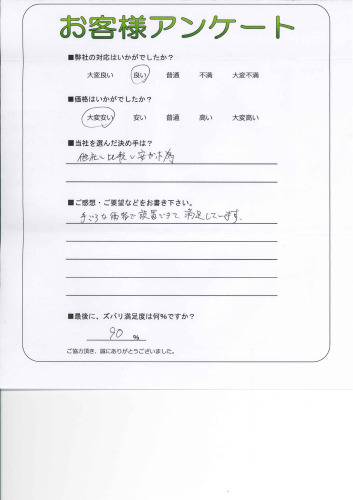 お客様アンケート
■弊社の対応はいかがでしたか?
大変良い 良い 普通 不満 大変不満
■価格はいかがでしたか?
大変安い 安い 普通 高い 大変高い
■当社を選んだ決め手は?
他社と比較し安かった為
■ご感想・ご要望などをお書き下さい。
手ごろな価格で設置できて満足しています。
■最後に、ズバリ満足度は何%ですか?
90 %
ご協力頂き、誠にありがとうございました。